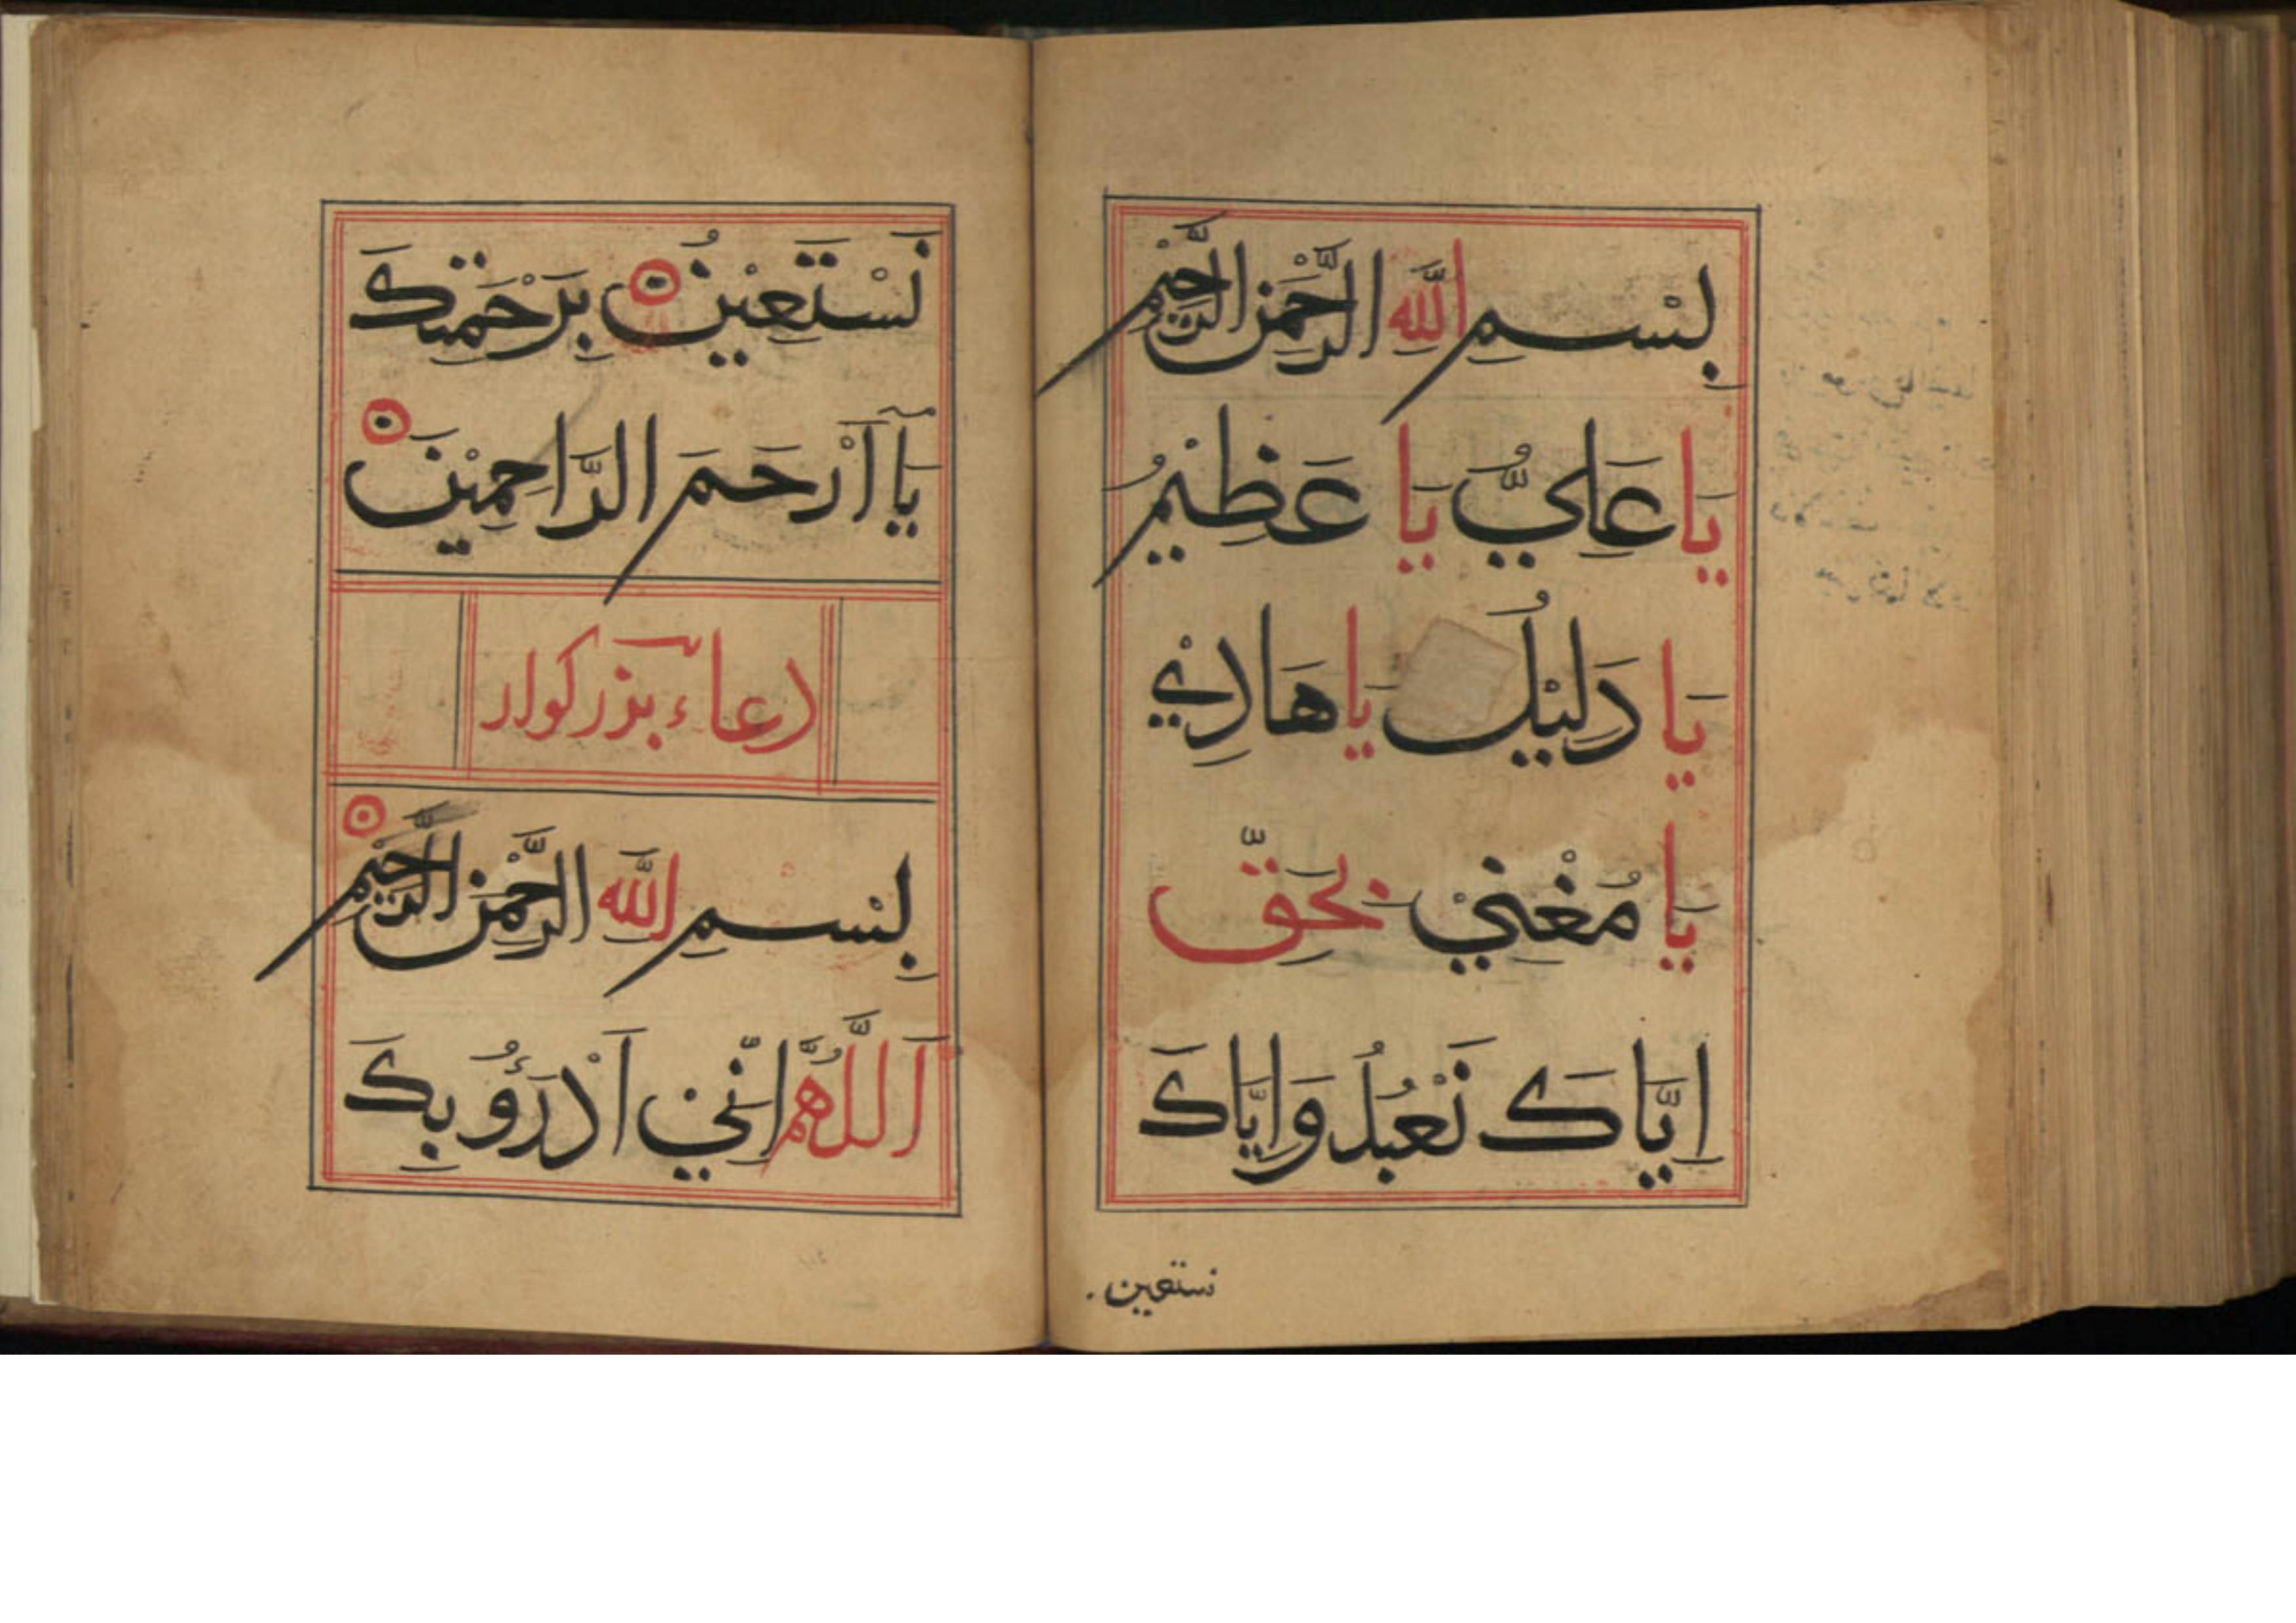 بِسْمِ اللّٰهِ الرَّحْمٰنِ الرَّحِيْمِ
يَا عَلِيُّ يَا عَظِيْمُ
يَا دَلِيْلُ يَا هَادِيْ
يَا مُغْنِيْ بِحَقِّ
اِيَّاكَ نَعْبُدُ وَاِيَّاكَ
نستعين
نَسْتَعِيْنُ بِرَحْمَتِكَ
يَآ اَرْحَمَ الرَّاحِمِيْنَ
دعاء بزرگوار
بِسْمِ اللّٰهِ الرَّحْمٰنِ الرَّحِيْمِ
اَللّٰهُمَّ اِنِّيْ اَدْرَؤُ بِكَ